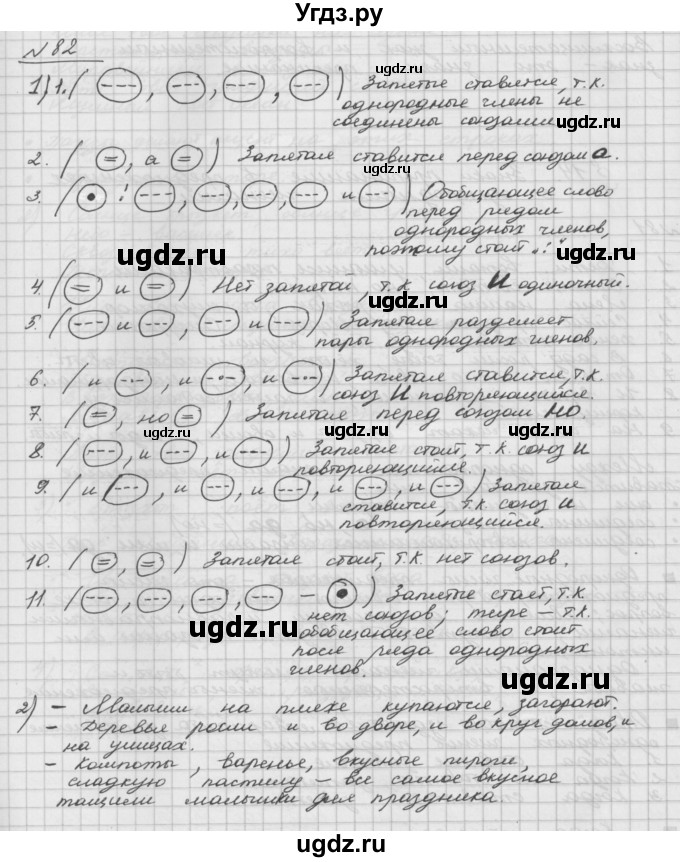 Угдз.ру
№ 82
1) 1. ( (---), (---), (---), (---) ) Запятые ставится, т.к.
однородные члены не
соединены союзами
ugdz.ru ugdz.ru
2. ( (=), а (=) ) Запятая ставится перед союзом а.
3. ( (•): (---), (---), (---), (---) и (---) ) Обобщающее слово
перед рядом
однородных членов,
поэтому стоит „:"
ugdz.ru ugdz.ru
4. ( (=) и (=) ) Нет запятой, т.к. союз И одиночный.
5. ( (---) и (---), (---) и (---) ) Запятая разделяет
пары однородных членов.
ugdz.ru
6. ( и (-·-), и (-·-), и (-·-) ) Запятая ставится, т.к.
союз И повторяющийся.
7. ( (=), но (=) ) Запятая перед союзом НО.
ugdz.ru ugdz.ru
8. ( (---), и (---), и (---) ) Запятая стоит, т.к. союз И
повторяющийся.
9. ( и (---), и (---), и (---), и (---), и (---) ) Запятая
ставится, т.к. союз И
повторяющийся.
ugdz.ru
10. ( (=), (=) ) Запятая стоит, т.к. нет союзов.
11. ( (---), (---), (---), (---) – (•) ) Запятые стоят, т.к.
нет союзов; тире – т.к.
обобщающее слово стоит
после ряда однородных
членов.
ugdz.ru ugdz.ru
2) – Малыши на пляже купаются, загорают.
– Деревья росли и во дворе, и вокруг домов, и
на улицах.
– Компоты, варенье, вкусные пироги,
сладкую пастилу – все самое вкусное
тащили малышки для праздника.
ugdz.ru ugdz.ru
ugdz.ru